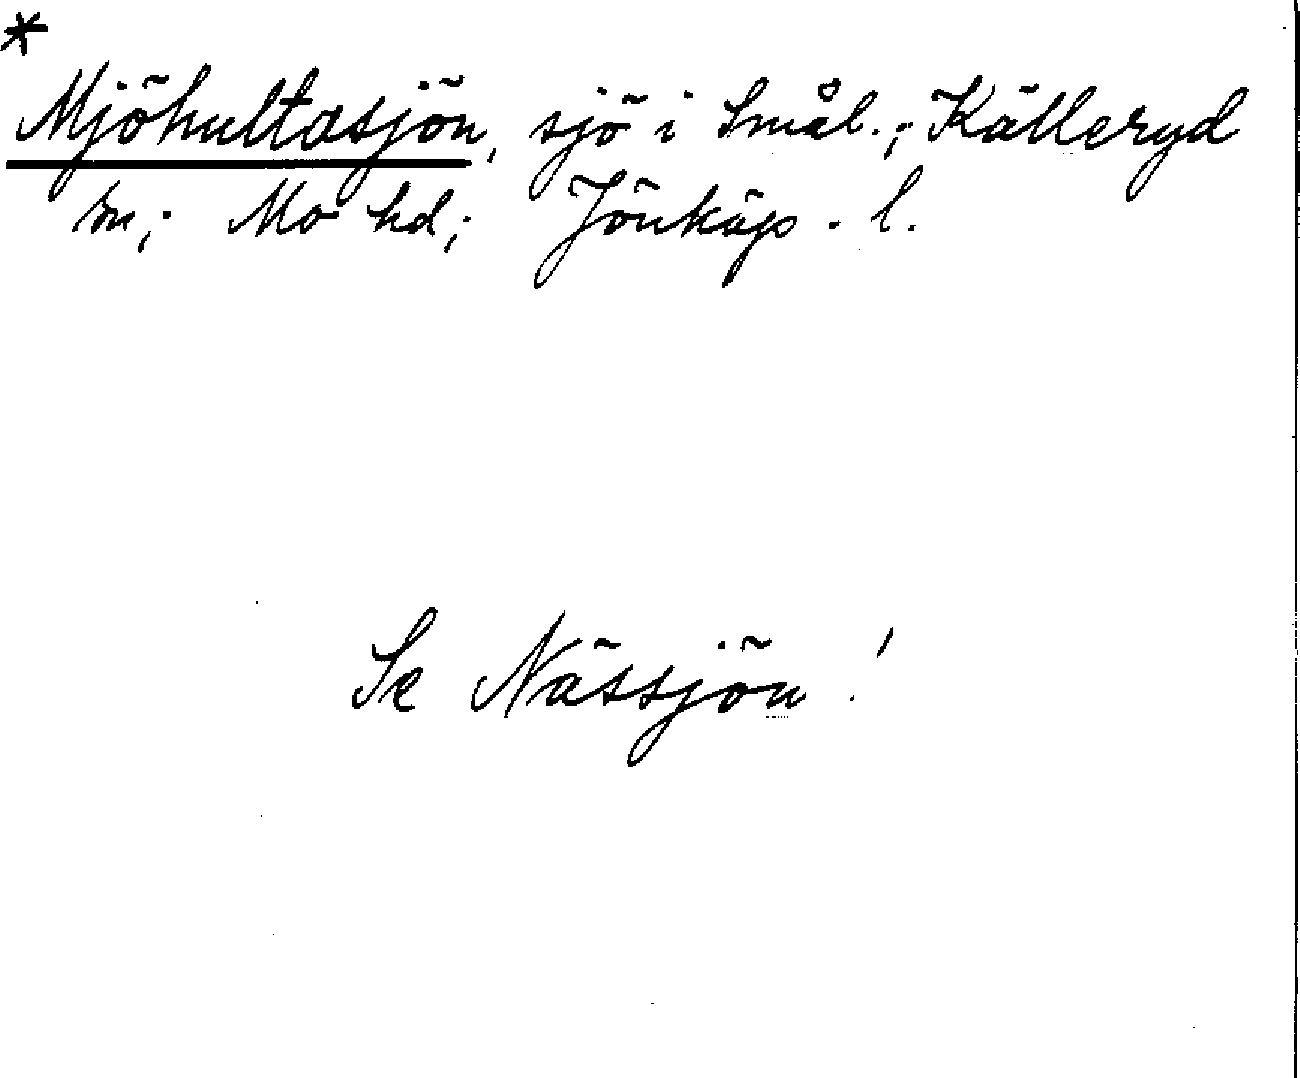 *
Mjöhultasjön, sjö i Smål.; Källeryd
sn; Mo hd; Jönköp. l.
Se Nässjön!